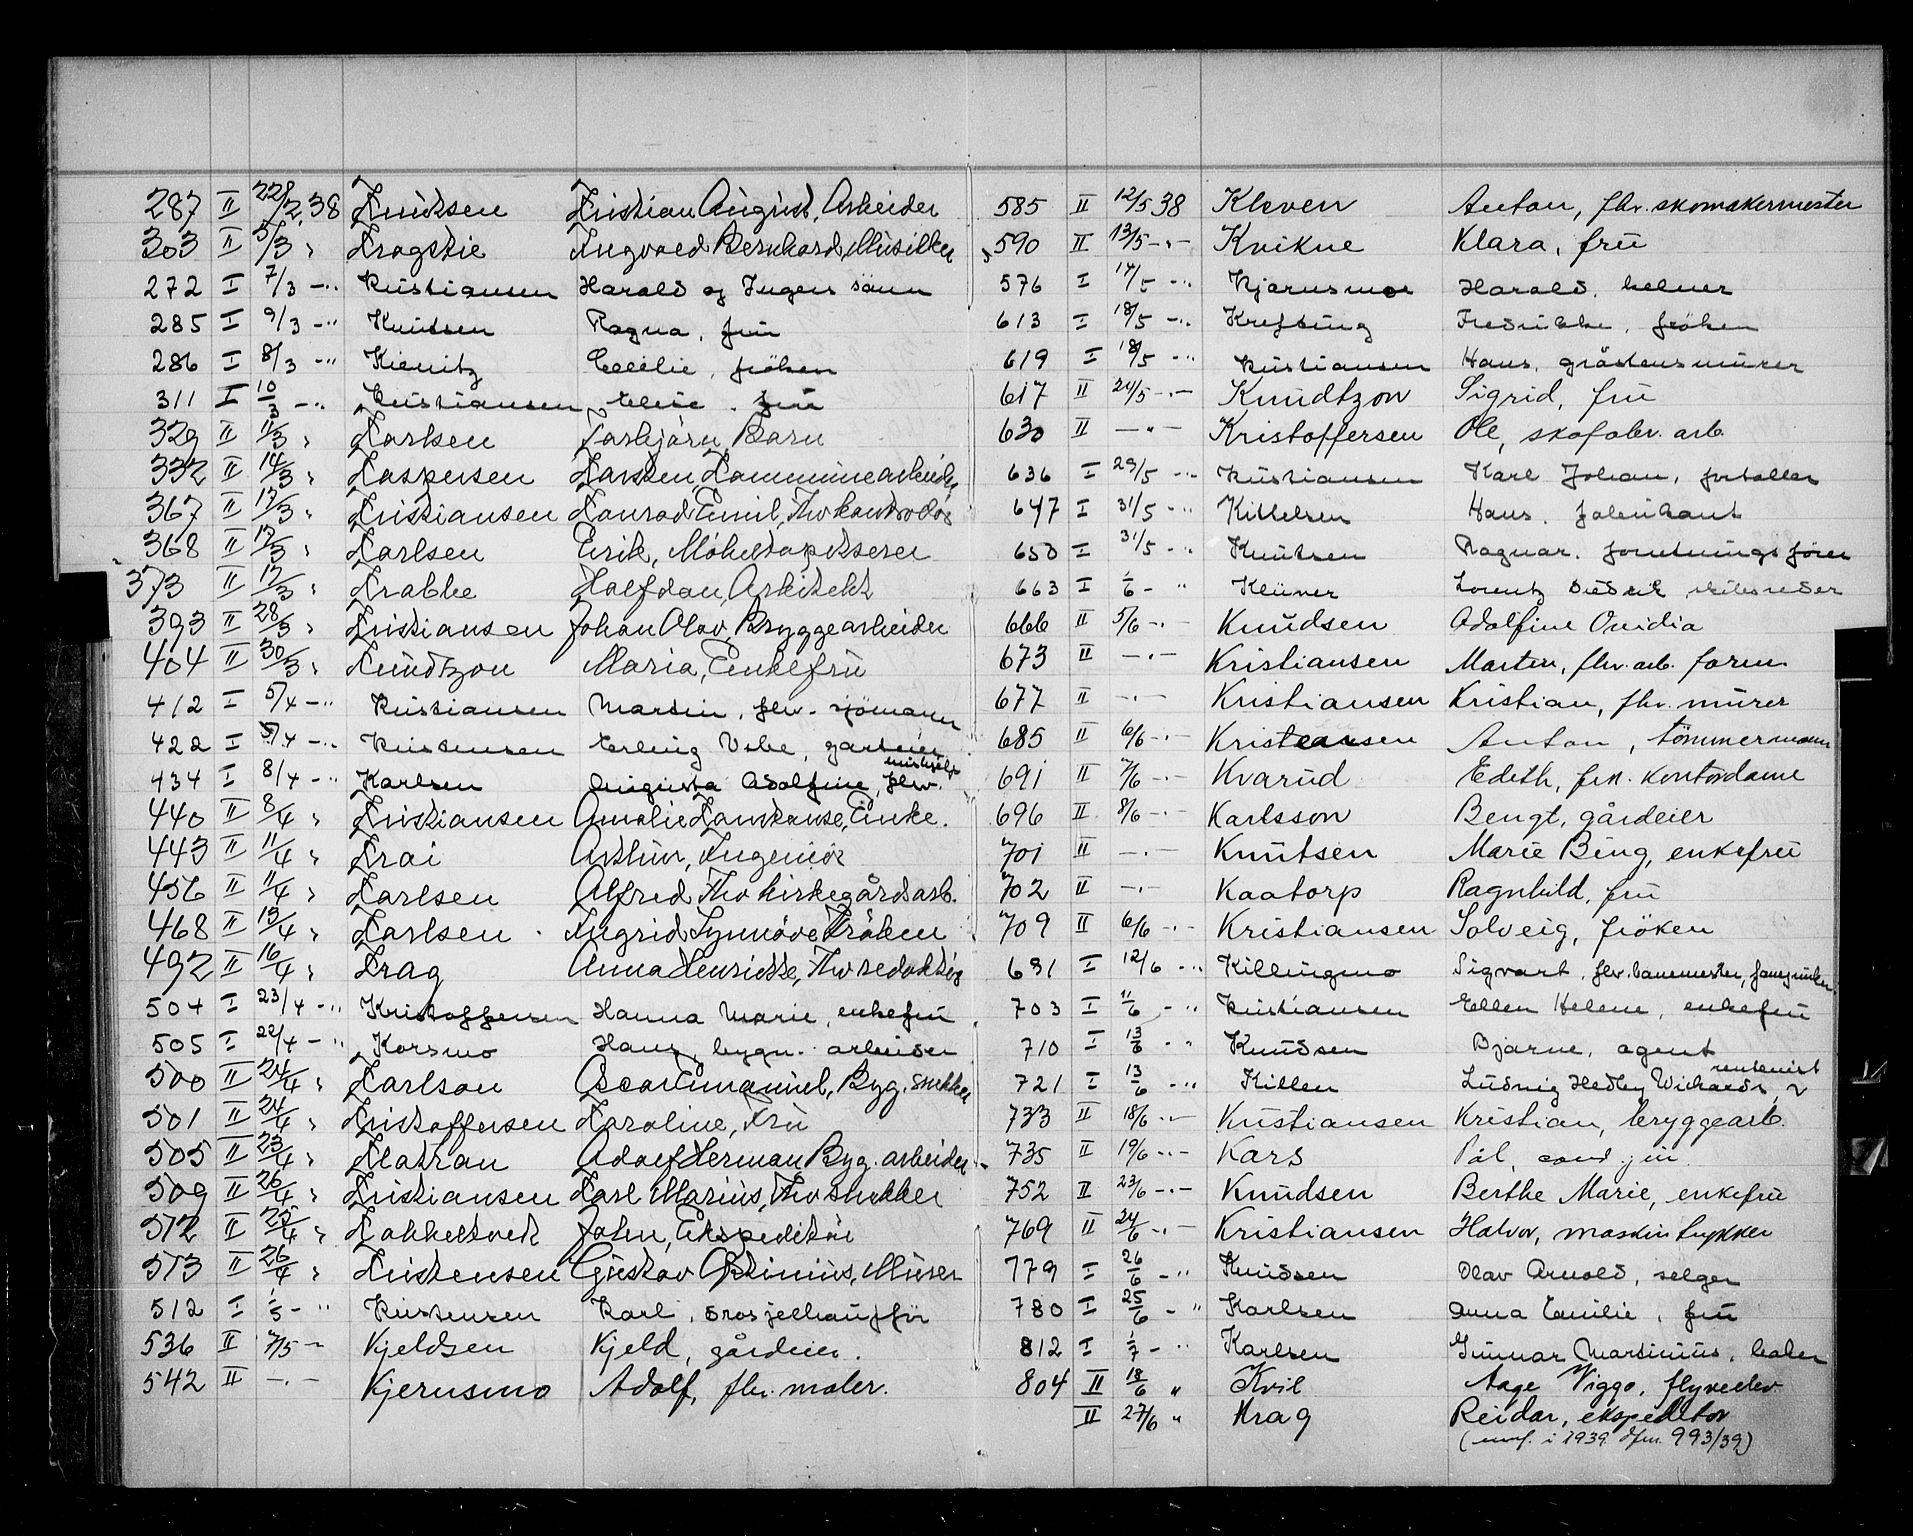 287 II 22/2 38 Knutsen Kristian August, Arbeider
303 II 5/3 " Kragskie Ingvald Bernhard, Musiker
272 I 7/3 -" Kristiansen Harald og Ingers sönn
285 I 9/3 -" Knutsen Ragna, fru
286 I 8/3 -" Kienitz Cecilie, fröken
311 I 10/3 -" Kristiansen Elise, fru
329 II 11/3 " Karlsen Torbjörn, Barn
332 II 14/3 " Kaspersen Karsten Kommunearbeider
367 II 17/3 " Kristiansen Konrad Emil, Fhv kontrolör
368 II 17/3 " Karlsen Eirik, Möbeltapetserer
373 II 17/3 " Krabbe Halfdan, Arkitekt
393 II 28/3 " Kristiansen Johan Olav, Bryggearbeider
404 II 30/3 " Knudtzon Maria, Enkefru
412 I 5/4 -" Kristiansen Martin, fhv. sjömann
422 I 5/4 -" Kristensen Erling Vebe, gartner
434 I 8/4 -" Karlsen Augusta Adolfine, fhv. hushjelp
440 II 8/4 " Kristiansen Amalie Konstanse, Enke.
443 II 11/4 " Krai Arthur, Ingeniör
456 II 11/4 " Karlsen Alfred Fhv kirkegårdsarb.
468 II 13/4 " Karlsen Ingrid Synnöve Fröken
492 II 16/4 " Krag Anna Henriette, Fhv redaktör
504 I 23/4 -" Kristoffersen Hanna Marie, enkefru
505 I 22/4 -" Korsmo Hans, bygn. arbeider
500 II 24/4 " Karlson Oscar Emanuel, Byg. snekker
501 II 24/4 " Kristoffersen Karoline, Fru
505 II 23/4 " Klatran Adolf Herman Byg. arbeider
509 II 26/4 " Kristiansen Karl Marius, Fhv snekker
512 II 25/4 " Kabbeltvedt John, Ekspeditör
513 II 26/4 " Kristensen Gustav Marinius, Murer
512 I 1/5 -" Kristensen Karl, drosjehaufför
536 II 7/5 - Kjeldsen Kjeld, gårdeier.
542 II -"- Kjernsmo Adolf, fhv. maler.
585 II 12/5 38 Kleven Anton, fhv. skomakermester
590 II 13/5 -"- Kvikne Klara, fru
576 I 14/5 -" Kjærnsmoe Harald, kelner
613 I 18/5 -" Krefting Fredrikke, fröken
619 I 18/5 -" Kristiansen Hans, gråstensmurer
617 II 24/5 -"- Knudtzon Sigrid, fru
630 II -"- Kristoffersen Ole, skofabr. arb.
636 I 29/5 -" Kristiansen Karl Johan, fortaller
647 I 31/5 -" Kittelsen Hans, fabrikant
650 I 31/5 -" Knutsen Ragnar, forretningsförer
663 I 1/6 - " Klüver Lorentz Didrik skibsreder
666 II 5/6 -"- Knudsen Adolfine Ovidia
673 II -"- Kristiansen Marten, fhv. arb. form.
677 II -"- Kristiansen Kristian, fhv. murer
685 II 6/6 -"- Kristensen Anton, tömmermann
691 II 7/6 -"- Kvarud Edith, frk. kontordame
696 II 8/6 -"- Karlsson Bengt, gårdeier
701 II -"- Knutsen Marie Bing, enkefru
702 II -"- Kaatorp Ragnhild, fru
709 II 6/6 -"- Kristiansen Solveig, fröken
691 I 12/6 -" Killingmo Sigvart, fhv. banemester,
703 I 11/6 -" Kristiansen Ellen Helene, enkefru
710 I 13/6 " Knudsen Bjarne, agent
721 I 13/6 -" Killen Ludvig Hedley Wickards, rentenist
733 II 18/6 -"- Kristiansen Kristian, bryggearb.
735 II 19/6 -"- Kars Pål, cand. jur.
752 II 23/6 -"- Knudsen Berthe Marie, enkefru
769 II 24/6 -"- Kristiansen Halvor, maskintrykker
779 I 26/6 -" Knudsen Olav Arnold, selger
780 I 25/6 - " Karlsen Anna Emilie, fru
812 I 1/7 - " Karlsen Gunnar Martinius, baker
804 II 18/6 " Kvil Aage Viggo, flyveelev
II 27/6 " Krag Reidar, ekspeditor
(innf. i 1939 993/39)